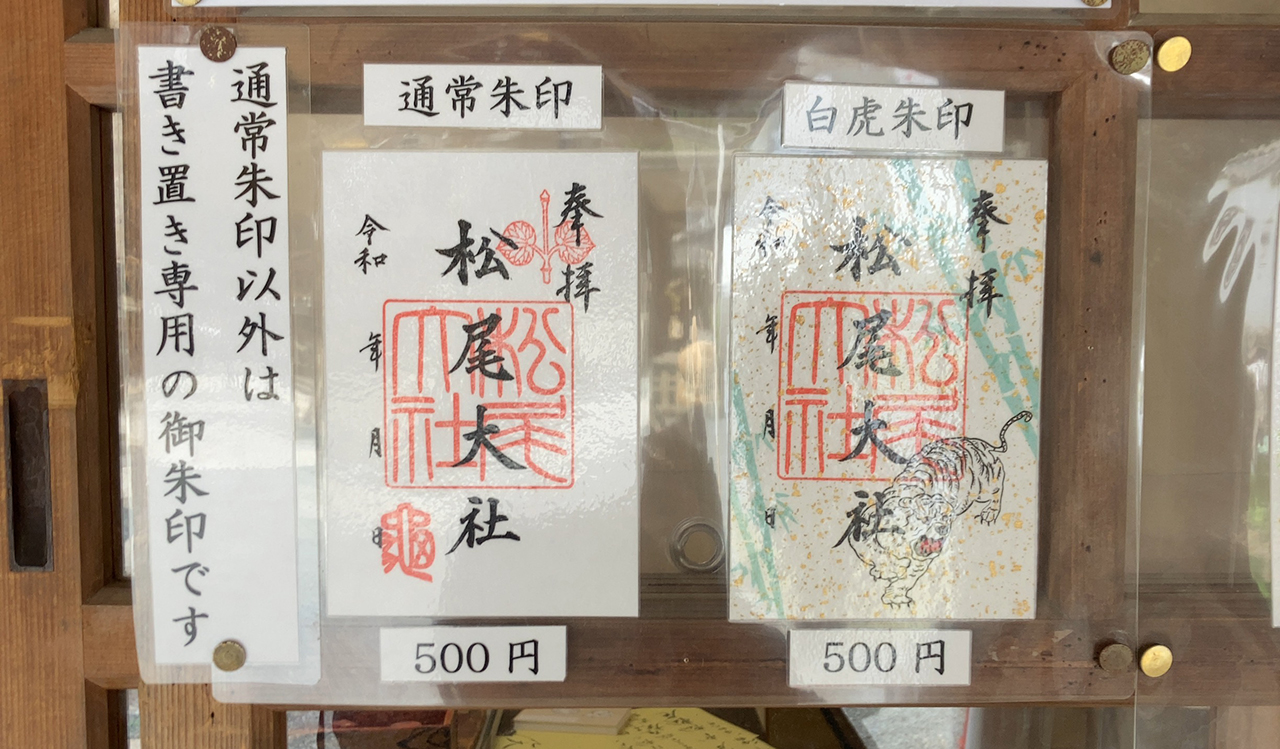 通常朱印以外は
書き置き専用の御朱印です
通常朱印
奉拝
松尾大社
令和 年 月 日
松尾大社
龜
500 円
白虎朱印
奉拝
松尾大社
令和 年 月 日
松尾大社
500 円